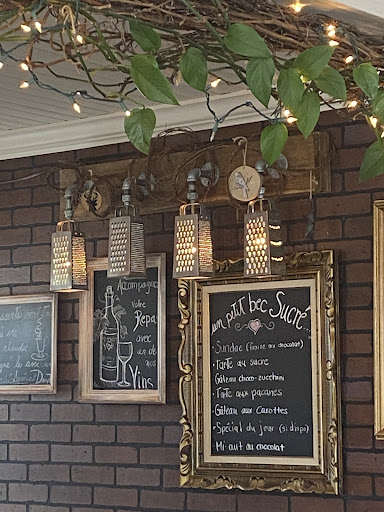 Accompagnez
Votre
Repas
avec
un de
nos
Vins
un petit bec Sucré!..
• Sundae (fraise ou chocolat)
• Tarte au sucre
Gâteau choco-zucchini
• Tarte aux pacanes
Gâteau aux Carottes
• Spécial du jour (si dispo)
• Mi-cuit au chocolat